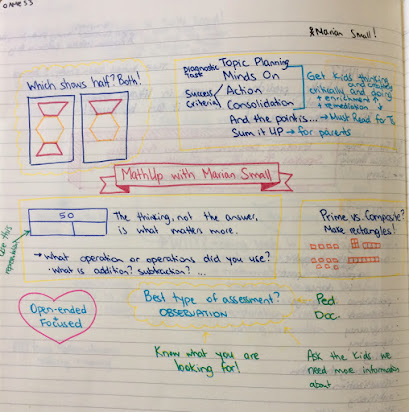 Marian Small!
Which shows half? Both!
diagnostic task
Topic Planning
Minds On
Success criteria
Action
Consolidation
And the point is... → Must Read for Ts
Sum it UP → for parents
Get kids thinking
critically and doing
enrichment ↑
remediation ↓
MathUp with Marian Small
50
The thinking, not the answer,
is what matters more.
→ What operation or operations did you use?
What is addition? subtraction? ...
Prime vs. Composite?
Make rectangles!
Open-ended
+
Focused
Best type of assessment?
OBSERVATION
Know what you are
looking for!
Ped.
Doc.
Ask the kids we
need more information
about.